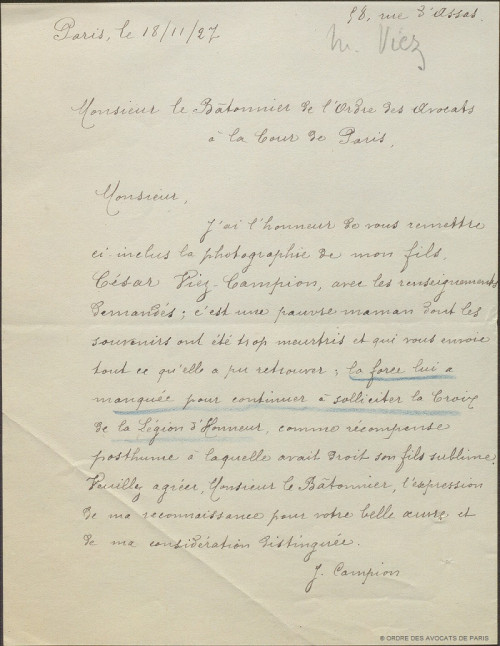 58, rue d'Assas.
Paris, le 18/11/27
M. Viez
Monsieur le Bâtonnier de l'Ordre des Avocats
à la Cour de Paris,
Monsieur,
J'ai l'honneur de vous remettre
ci-inclus la photographie de mon fils,
César Viez-Campion, avec les renseignements
demandés ; c'est une pauvre maman dont les
souvenirs ont été trop meurtris et qui vous envoie
tout ce qu'elle a pu retrouver ; la force lui a
manquée pour continuer à solliciter la Croix
de la Légion d'Honneur, comme récompense
posthume à laquelle avait droit son fils sublime.
Veuillez agréer, Monsieur le Bâtonnier, l'expression
de ma reconnaissance pour votre belle œuvre et
de ma considération distinguée.
J. Campion
© ORDRE DES AVOCATS DE PARIS